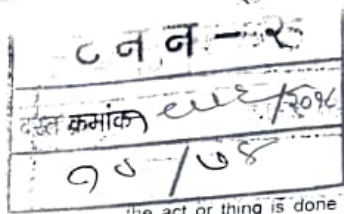 ट न न - २
दस्त क्रमांक /२०१८
१० / ७४
the act or thing is done